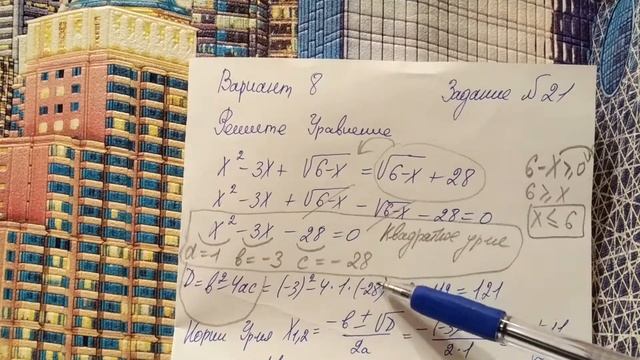 Вариант 8 Задание №21
Решете Уравнение
x² - 3x + √6-x = √6-x + 28
6-x ≥ 0
x² - 3x + √6-x - √6-x - 28 = 0
6 ≥ x
x ≤ 6
x² - 3x - 28 = 0 Квадратное ур-ие
a=1 b=-3 c=-28
D = b² 4ac = (-3)² - 4·1·(-28) 12 = 121
Корни Ур-ия X₁,₂ = -b ± √D / 2a = -(-3) / 2·1